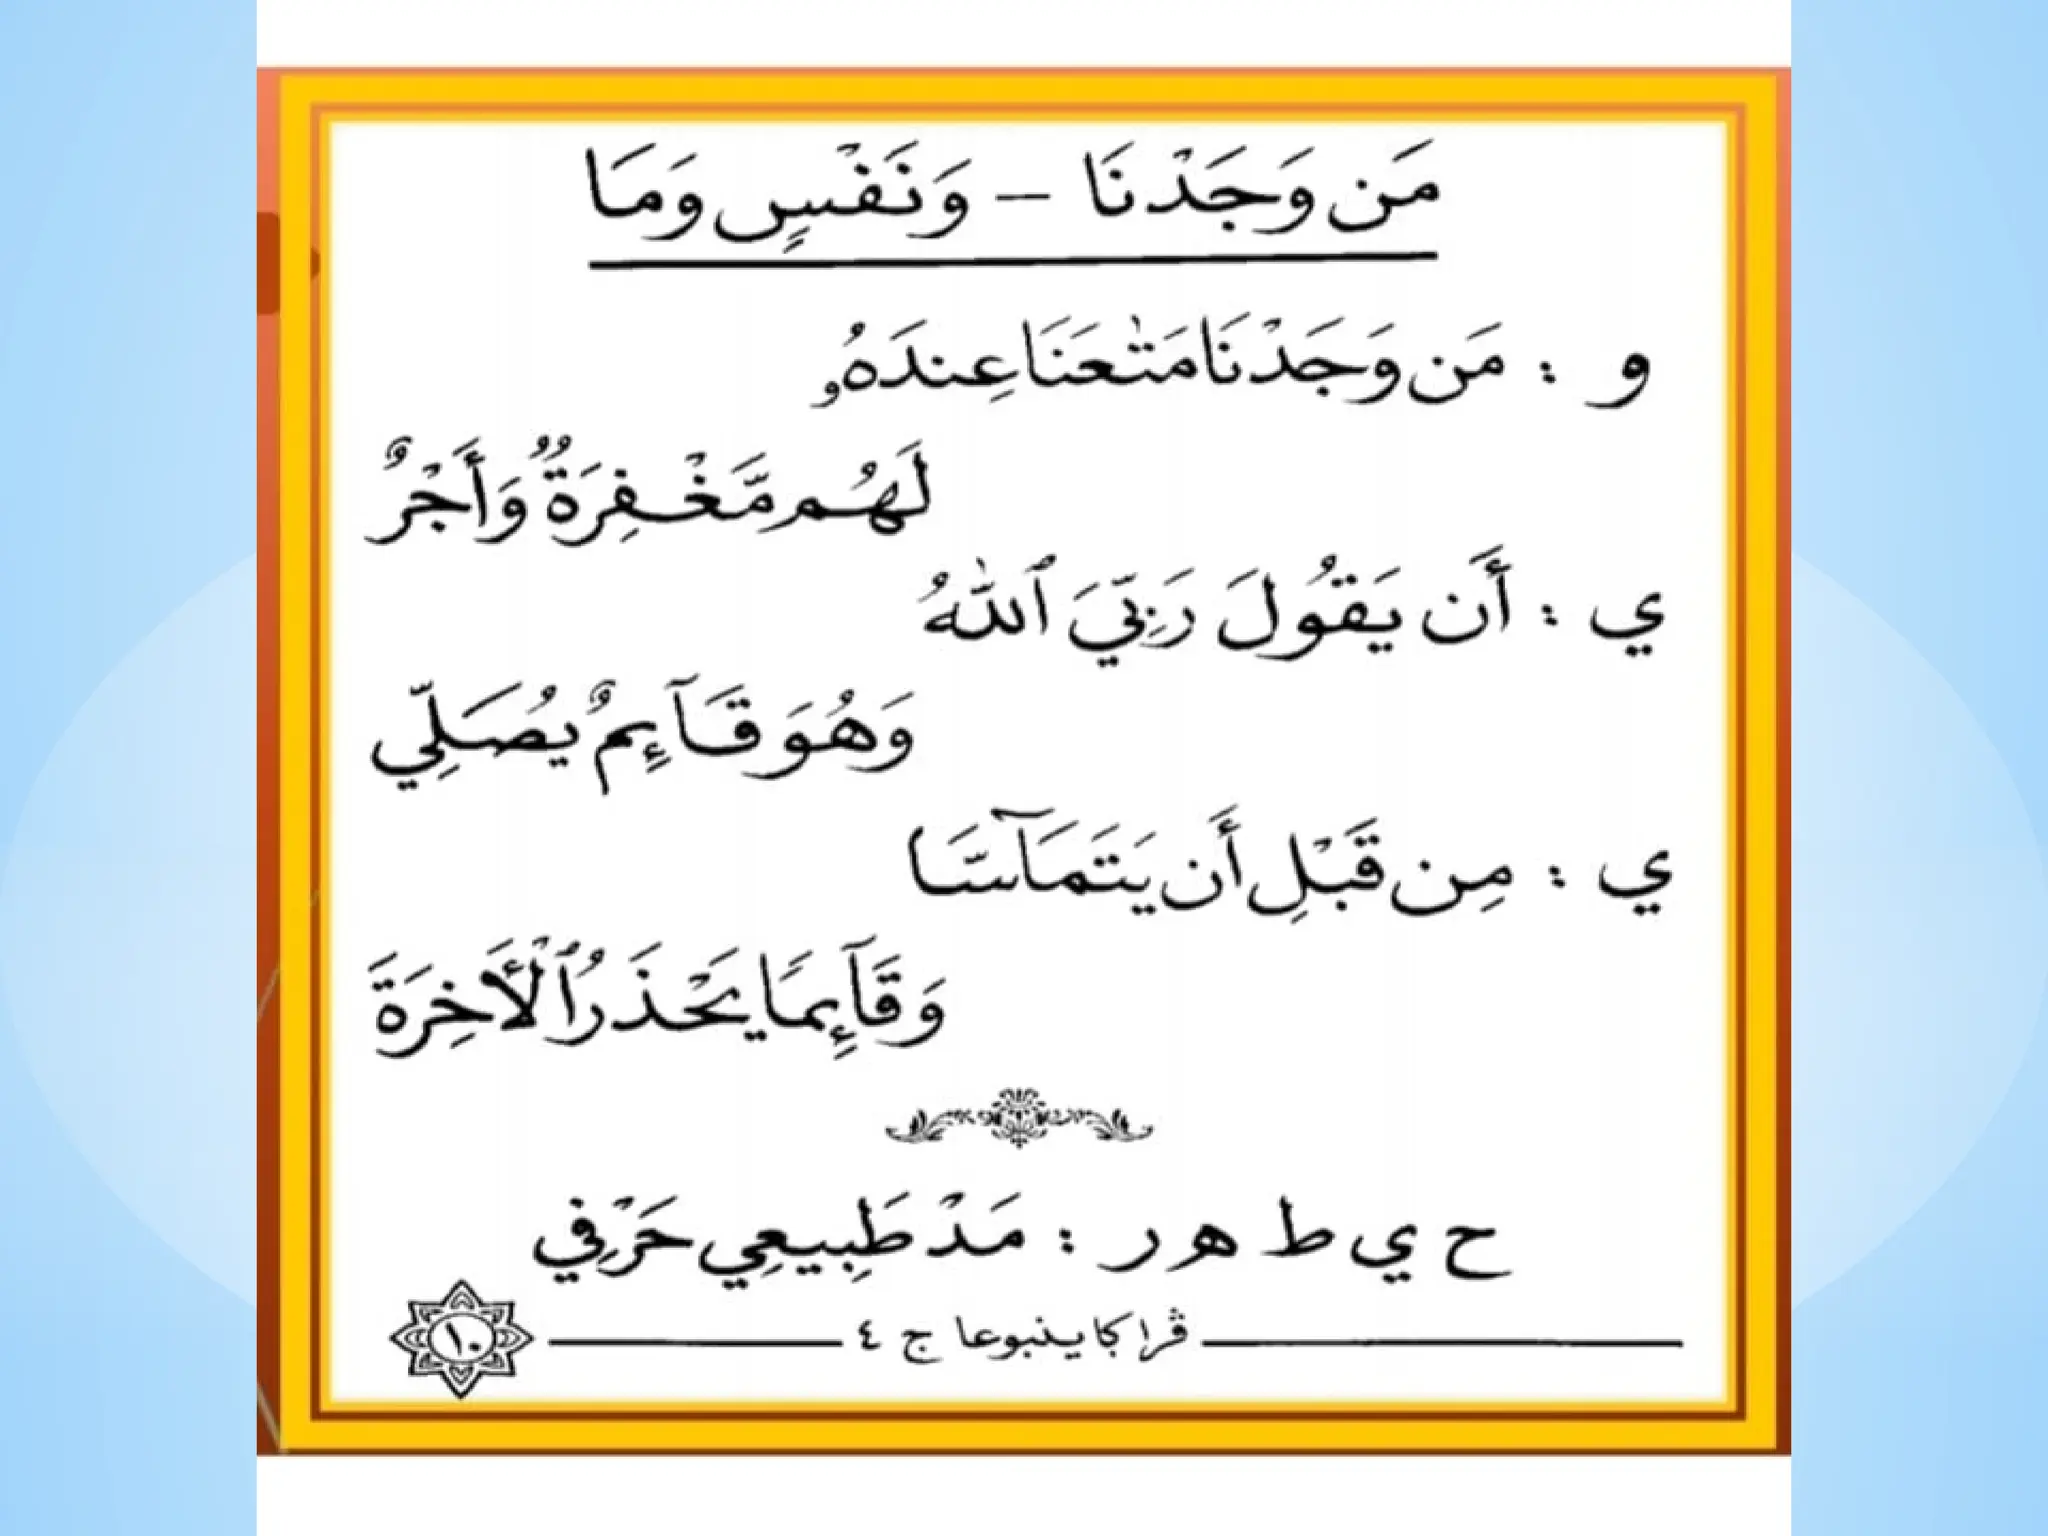 مَن وَجَدْنَا – وَنَفْسٍ وَمَا
و : مَن وَجَدْنَا مَتَٰعَنَا عِندَهُۥ
لَهُم مَّغْفِرَةٌ وَأَجْرٌ
ي : أَن يَقُولَ رَبِّيَ ٱللَّٰهُ
وَهُوَ قَآئِمٌ يُصَلِّي
ي : مِن قَبْلِ أَن يَتَمَآسَّا
وَقَآئِمًا يَحْذَرُ ٱلْأَخِرَةَ
ح ي ط ه ر : مَدْ طَبِيعِي حَرْفِي
١٠ ڤراكاينبوعا ج ٤